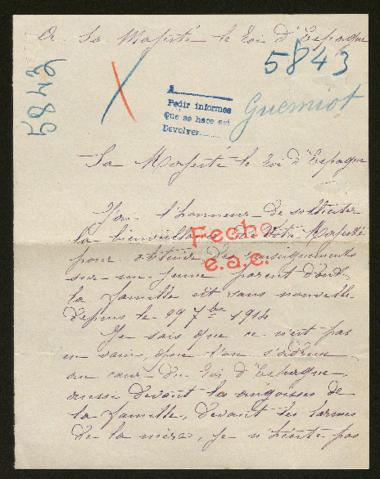 A Sa Majesté le Roi d'Espagne
5843
5843
A
Pedir informes
Que se hace así
Devolver
Guemiot
Sa Majesté le Roi d'Espagne
J'ai l'honneur de solliciter
la bienveillance de Votre Majesté
pour obtenir des renseignements
Fecha
e.a.c.
sur un jeune parent dont
la famille est sans nouvelle
depuis le 29 7bre 1914
Je sais que ce n'est pas
en vain que l'on s'adresse
au cœur du Roi d'Espagne
aussi devant les angoisses de
la famille, devant les larmes
de la mère, je n'hésite pas